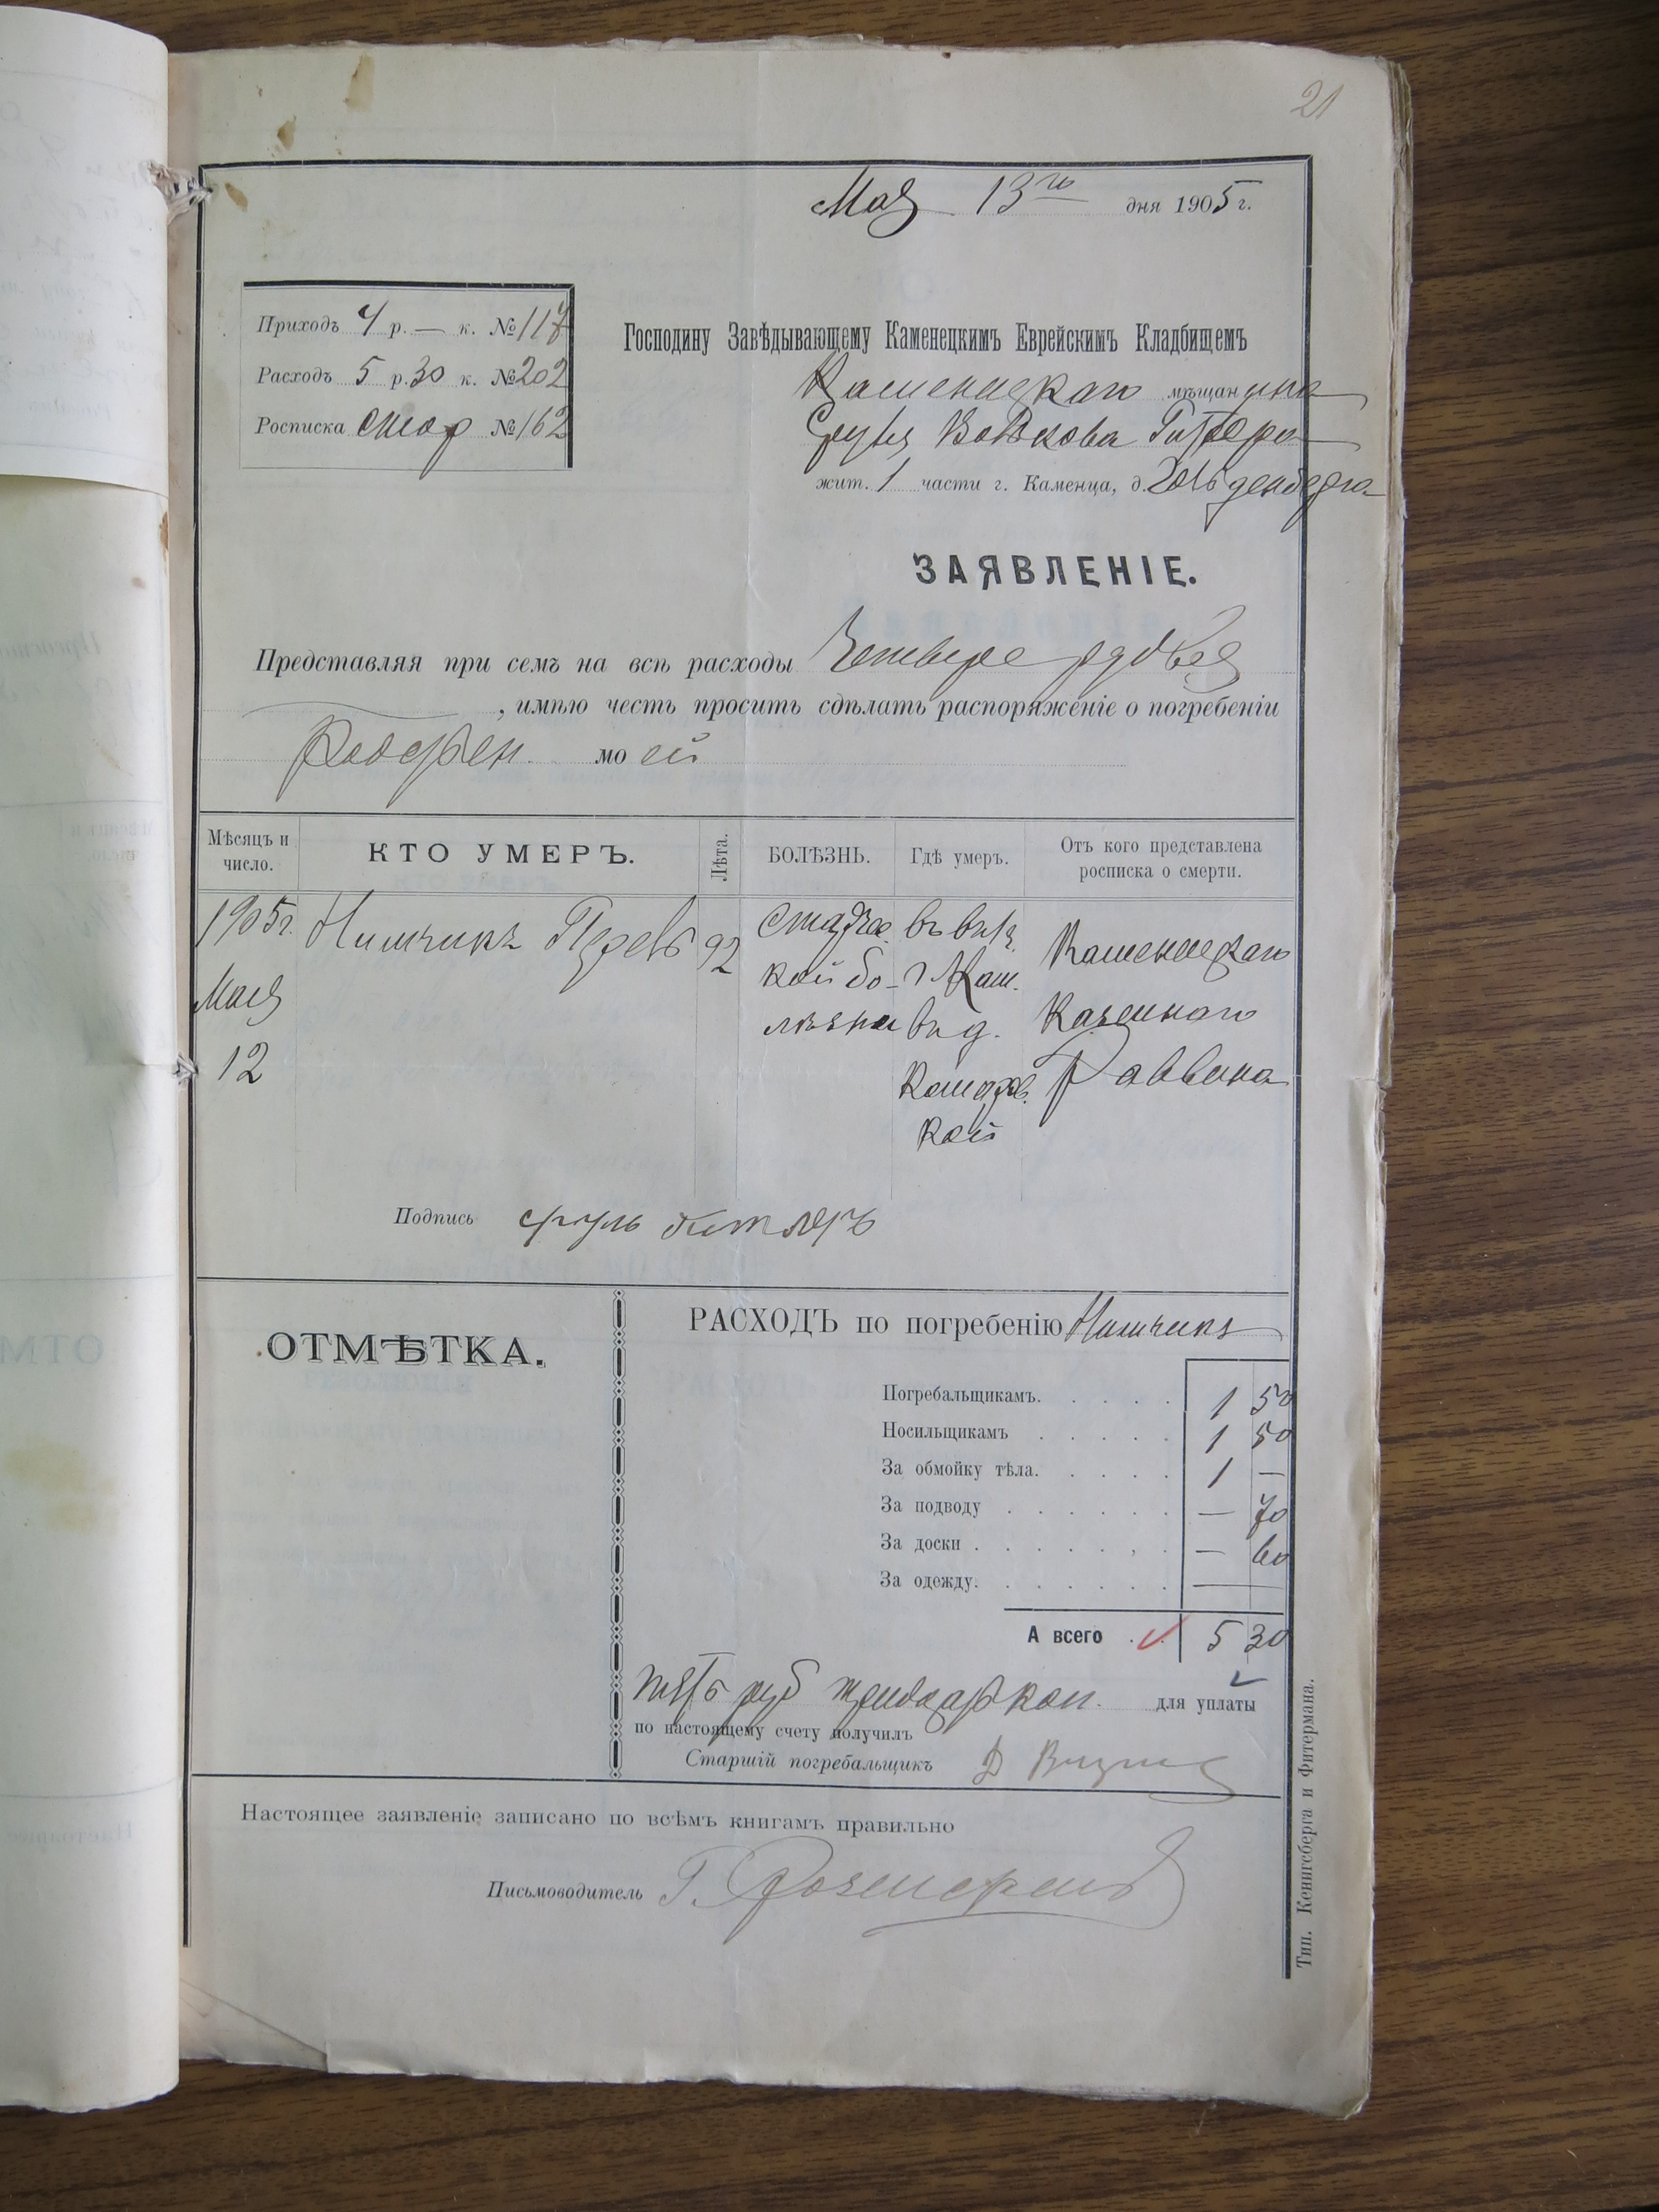 21
Мая 13го дня 1905 г.
Приходъ 4 р. — к. № 117
Расходъ 5 р. 30 к. № 202
Росписка смор № 162
Господину Завѣдывающему Каменецкимъ Еврейскимъ Кладбищемъ
Каменецкаго мѣщанина
Сруля Волькова
жит. 1 части г. Каменца, д. Гольденберга
ЗАЯВЛЕНІЕ.
Представляя при семъ на всѣ расходы Четыре рубля
, имѣю честь просить сдѣлать распоряженіе о погребеніи
моей
Мѣсяцъ и число.
КТО УМЕРЪ.
Лѣта.
БОЛѢЗНЬ.
Гдѣ умеръ.
Отъ кого представлена росписка о смерти.
1905 г. 92 Старчес
Мая кой бо- Каменецкаго
12 лѣзни въ д. Казеннаго
Раввина
кой
Подпись сруль битляръ
ОТМѢТКА.
РАСХОДЪ по погребенію
Погребальщикамъ. 1 50
Носильщикамъ 1 50
За обмойку тѣла. 1 —
За подводу — 70
За доски — 60
За одежду. —
А всего 5 30
пять руб тридцать коп. для уплаты
по настоящему счету получилъ
Старшій погребальщикъ
Настоящее заявленіе записано по всѣмъ книгамъ правильно
Письмоводитель Г.
Тип. Кенигсберга и Фитермана.